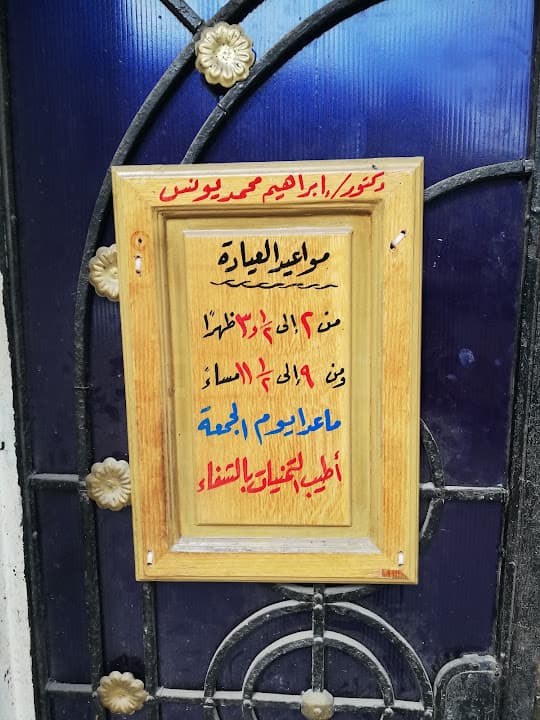 دكتور/ إبراهيم محمد يونس
مواعيد العيادة
من ٢ إلى ١/٢ و٣ ظهرًا
ومن ٩ إلى ١/٢ ١١ مساءً
ما عدا يوم الجمعة
أطيب التمنيات بالشفاء